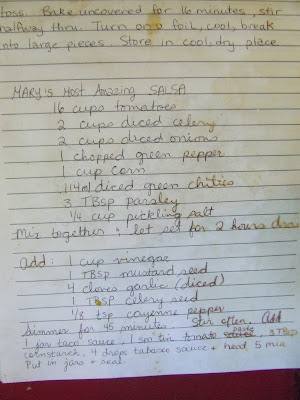 toss. Bake uncovered for 16 minutes, stir
halfway thru. Turn onto foil, cool, break
into large pieces. Store in cool, dry place
MARY'S MOST AMAZING SALSA
16 cups tomatoes
2 cups diced celery
2 cups diced onions
1 chopped green pepper
1 cup corn
114ml diced green chilies
3 TBsp parsley
1/4 cup pickling salt
Mix together & let set for 2 hours
Add: 1 cup vinegar
1 TBsp mustard seed
4 cloves garlic (diced)
1 TBSP celery seed
1/8 tsp cayenne pepper
Simmer for 45 minutes. Stir often. Add
1 jar taco sauce, 1 sm tin tomato paste, 3 TBsp
cornstarch, 4 drops tabasco sauce + head 5 min
Put in jars + seal.